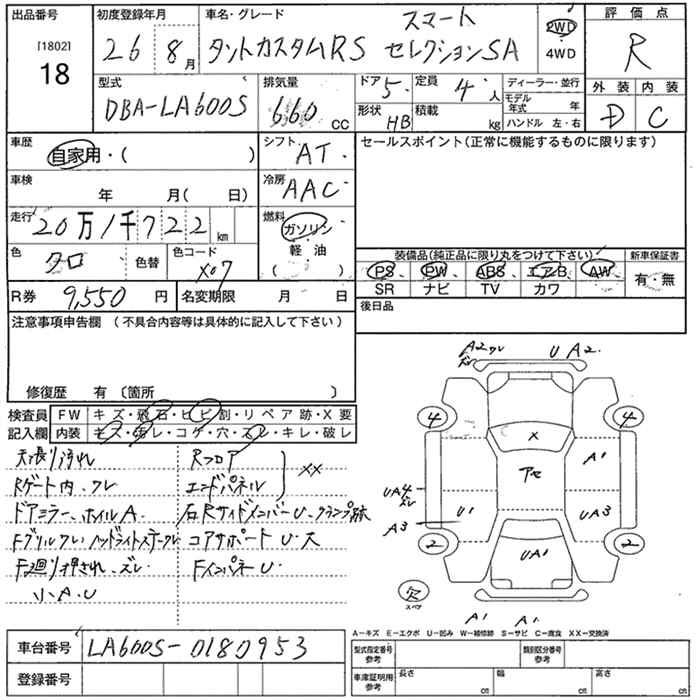 出品番号 [1802] 18
初度登録年月 26 8月
車名・グレード タントカスタムRS スマートセレクションSA
2WD 4WD
評価点 R
型式 DBA-LA600S
排気量 660 cc
ドア 5 定員 4人
形状 HB 積載 kg
ディーラー・並行
モデル年式 年
ハンドル 左・右
外装 内装
D C
車歴 自家用・( )
シフト AT
セールスポイント(正常に機能するものに限ります)
車検 年 月( 日)
冷房 AAC
走行 20万1千722km
燃料 ガソリン 軽・油 ( )
色 クロ 色替 色コード X07
装備品(純正品に限り丸をつけて下さい) 新車保証書
PS PW ABS エアB AW 有・無
SR ナビ TV カワ
R券 9,550円 名変期限 月 日
後日品
注意事項申告欄 (不具合内容等は具体的に記入して下さい)
修復歴 有 〔箇所 〕
検査員記入欄
FW キズ・飛石・ヒビ割・リペア跡・X要
内装 キズ・汚レ・コゲ・穴・スレ・キレ・破レ
天張り汚れ Rフロア
Rゲート内、ワレ エンドパネル XX
ドアミラー、ホイルA 右RサイドメンバーU、クランプ跡
コアサポートU・大
F廻り押され、ズレ FインパネU
小A、U
A2 ワレ ズレ U A2
4 4
X
A1
アセ
UA4 ズレ
A3 U1 UA3
2 2
UA1
欠 スペア
A1 A1
A-キズ E-エクボ U-凹み W-補修跡 S-サビ C-腐食 XX-交換済
車台番号 LA600S-0180953
登録番号
型式指定番号 参考 類別区分番号 参考
車庫証明用 参考 長さ cm 幅 cm 高さ cm